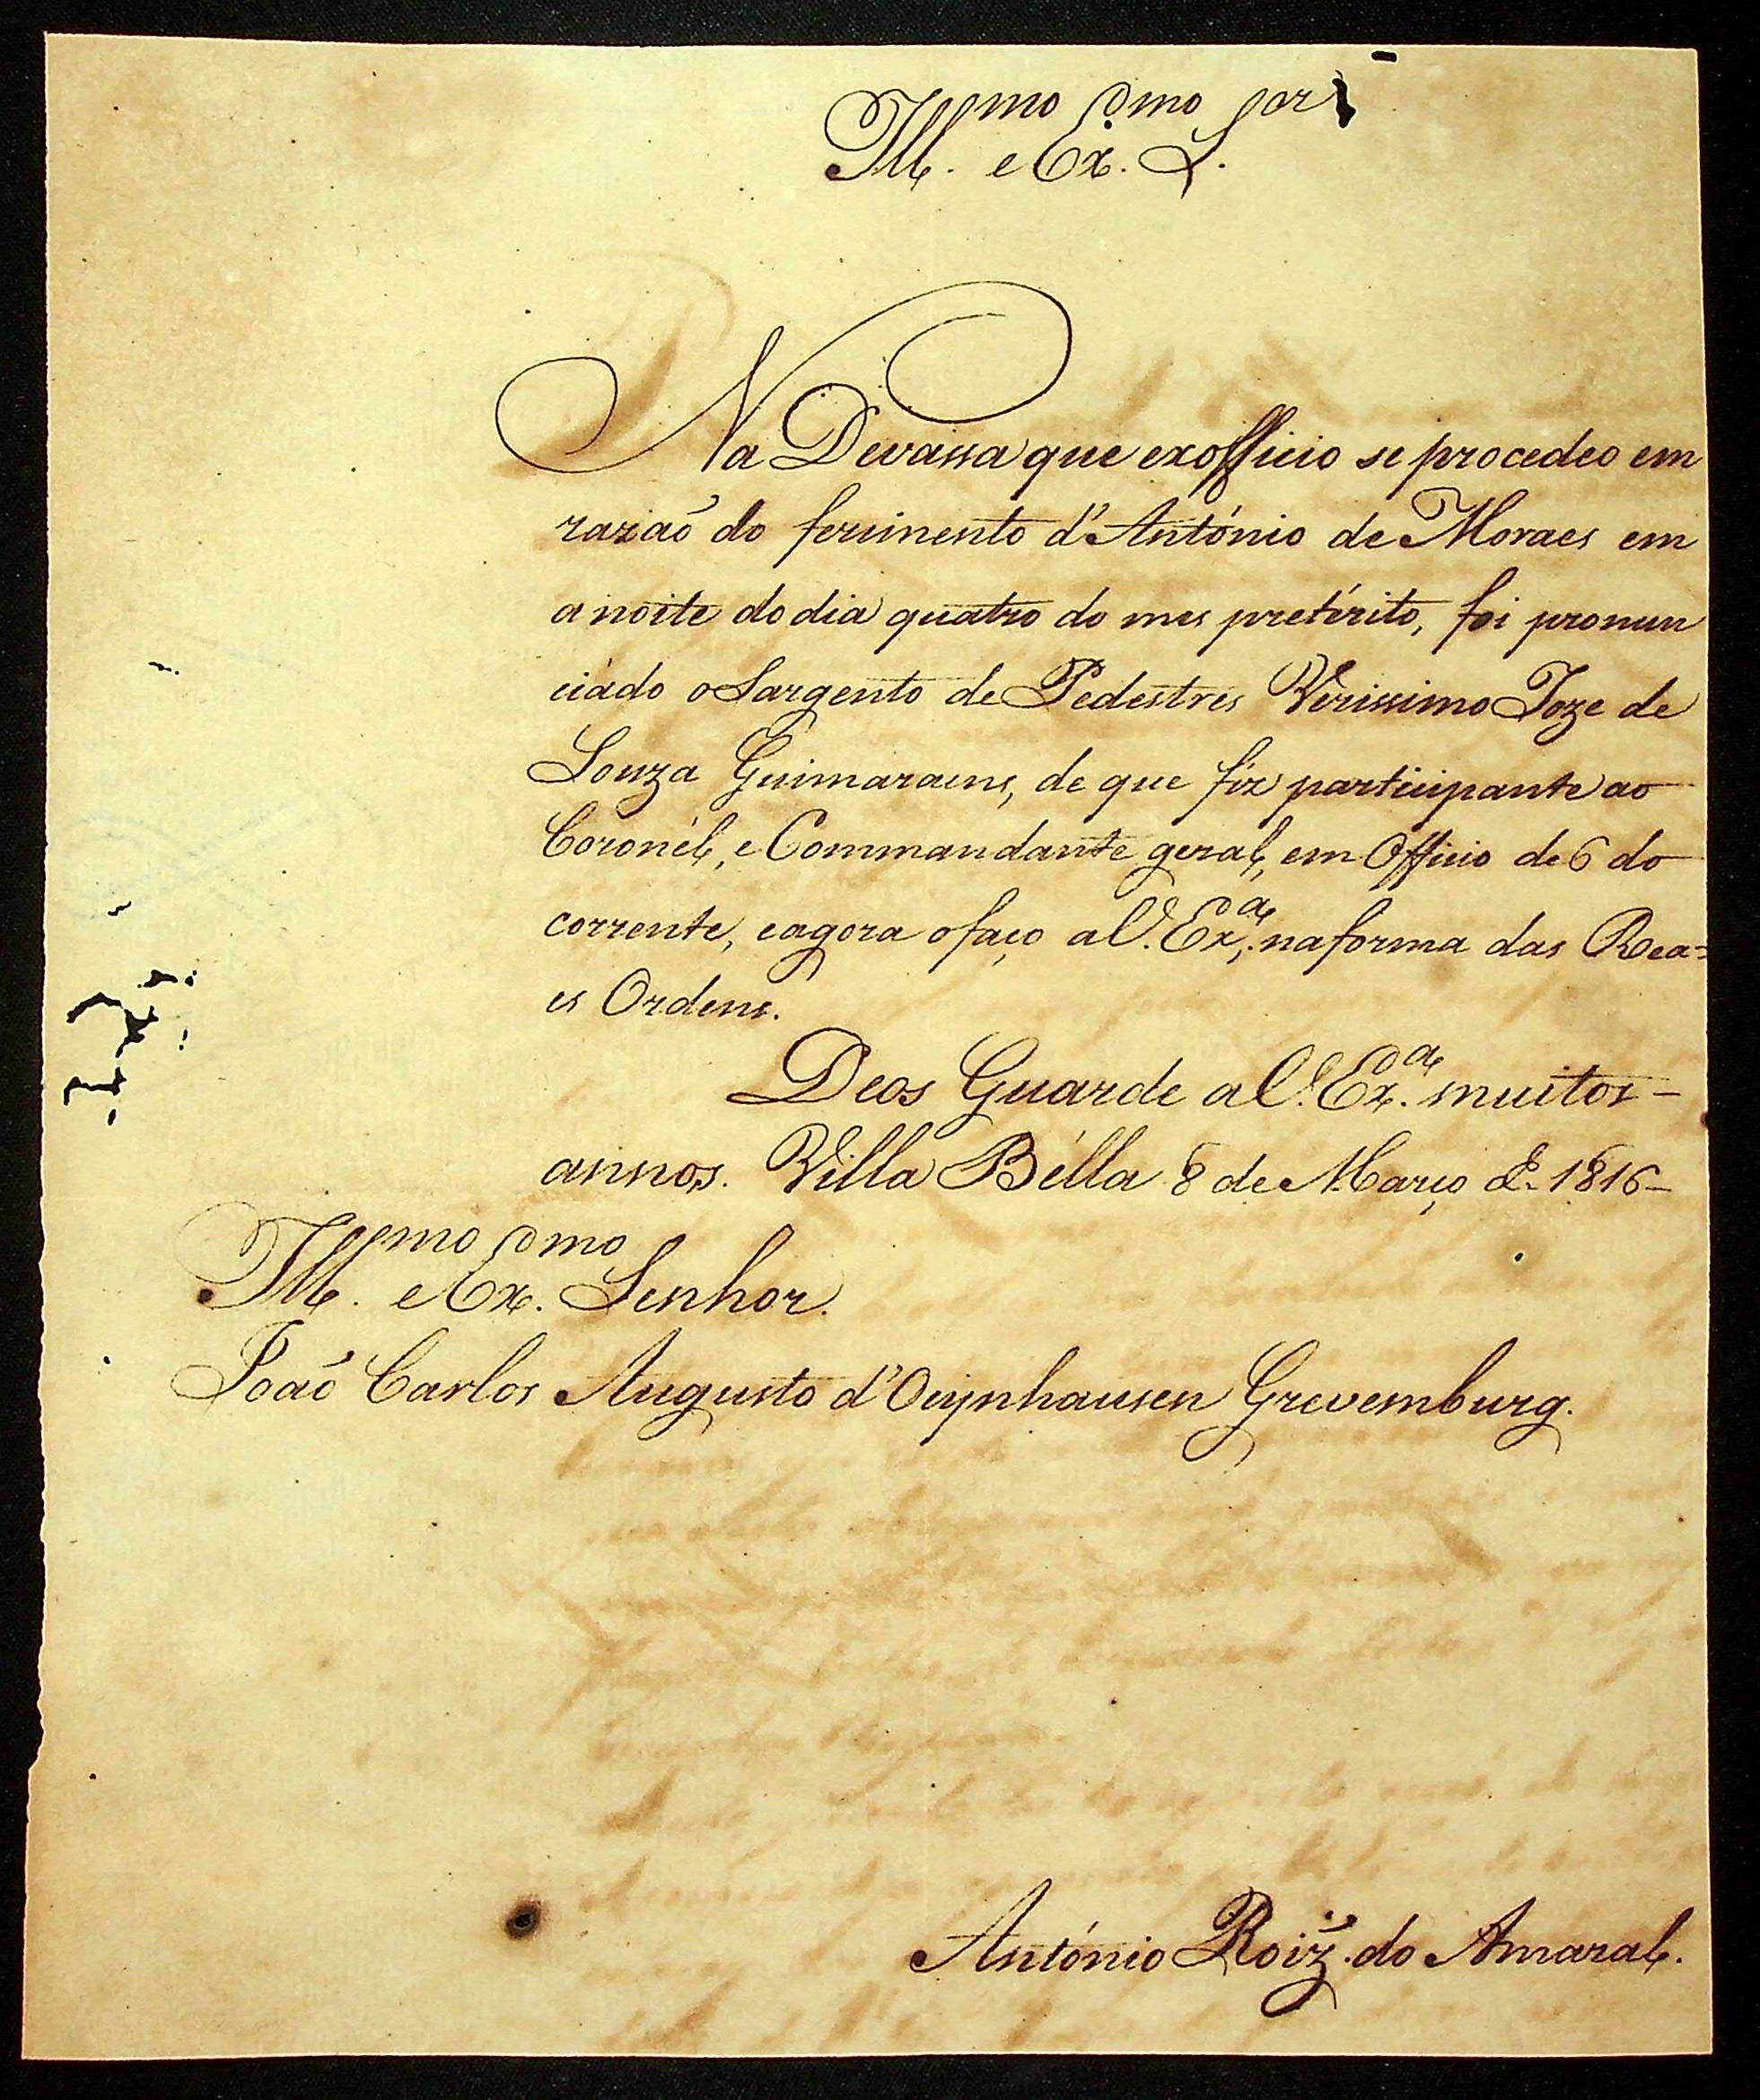 Ill.mo e Ex.mo S.or
Na Devassa que exofficio se procedeo em
razaõ do ferimento d'António de Moraes em
a noite do dia quatro do mes pretérito, foi pronun
ciádo o Sargento de Pedestres Verissimo Joze de
Souza Guimaraens, de que fiz participante ao
Coronél, e Commandante geral, em Officio de 6 do
corrente, e agora o faço a V. Ex.a, na forma das Rea=
es Ordens.
Deos Guarde a V. Ex.a muitos
annos. Villa Bélla 8 de Março de 1816
Ill.mo e Ex.mo Senhor.
Joaõ Carlos Augusto d'Oeynhausen Grevemburg.
António Roiz. do Amaral.